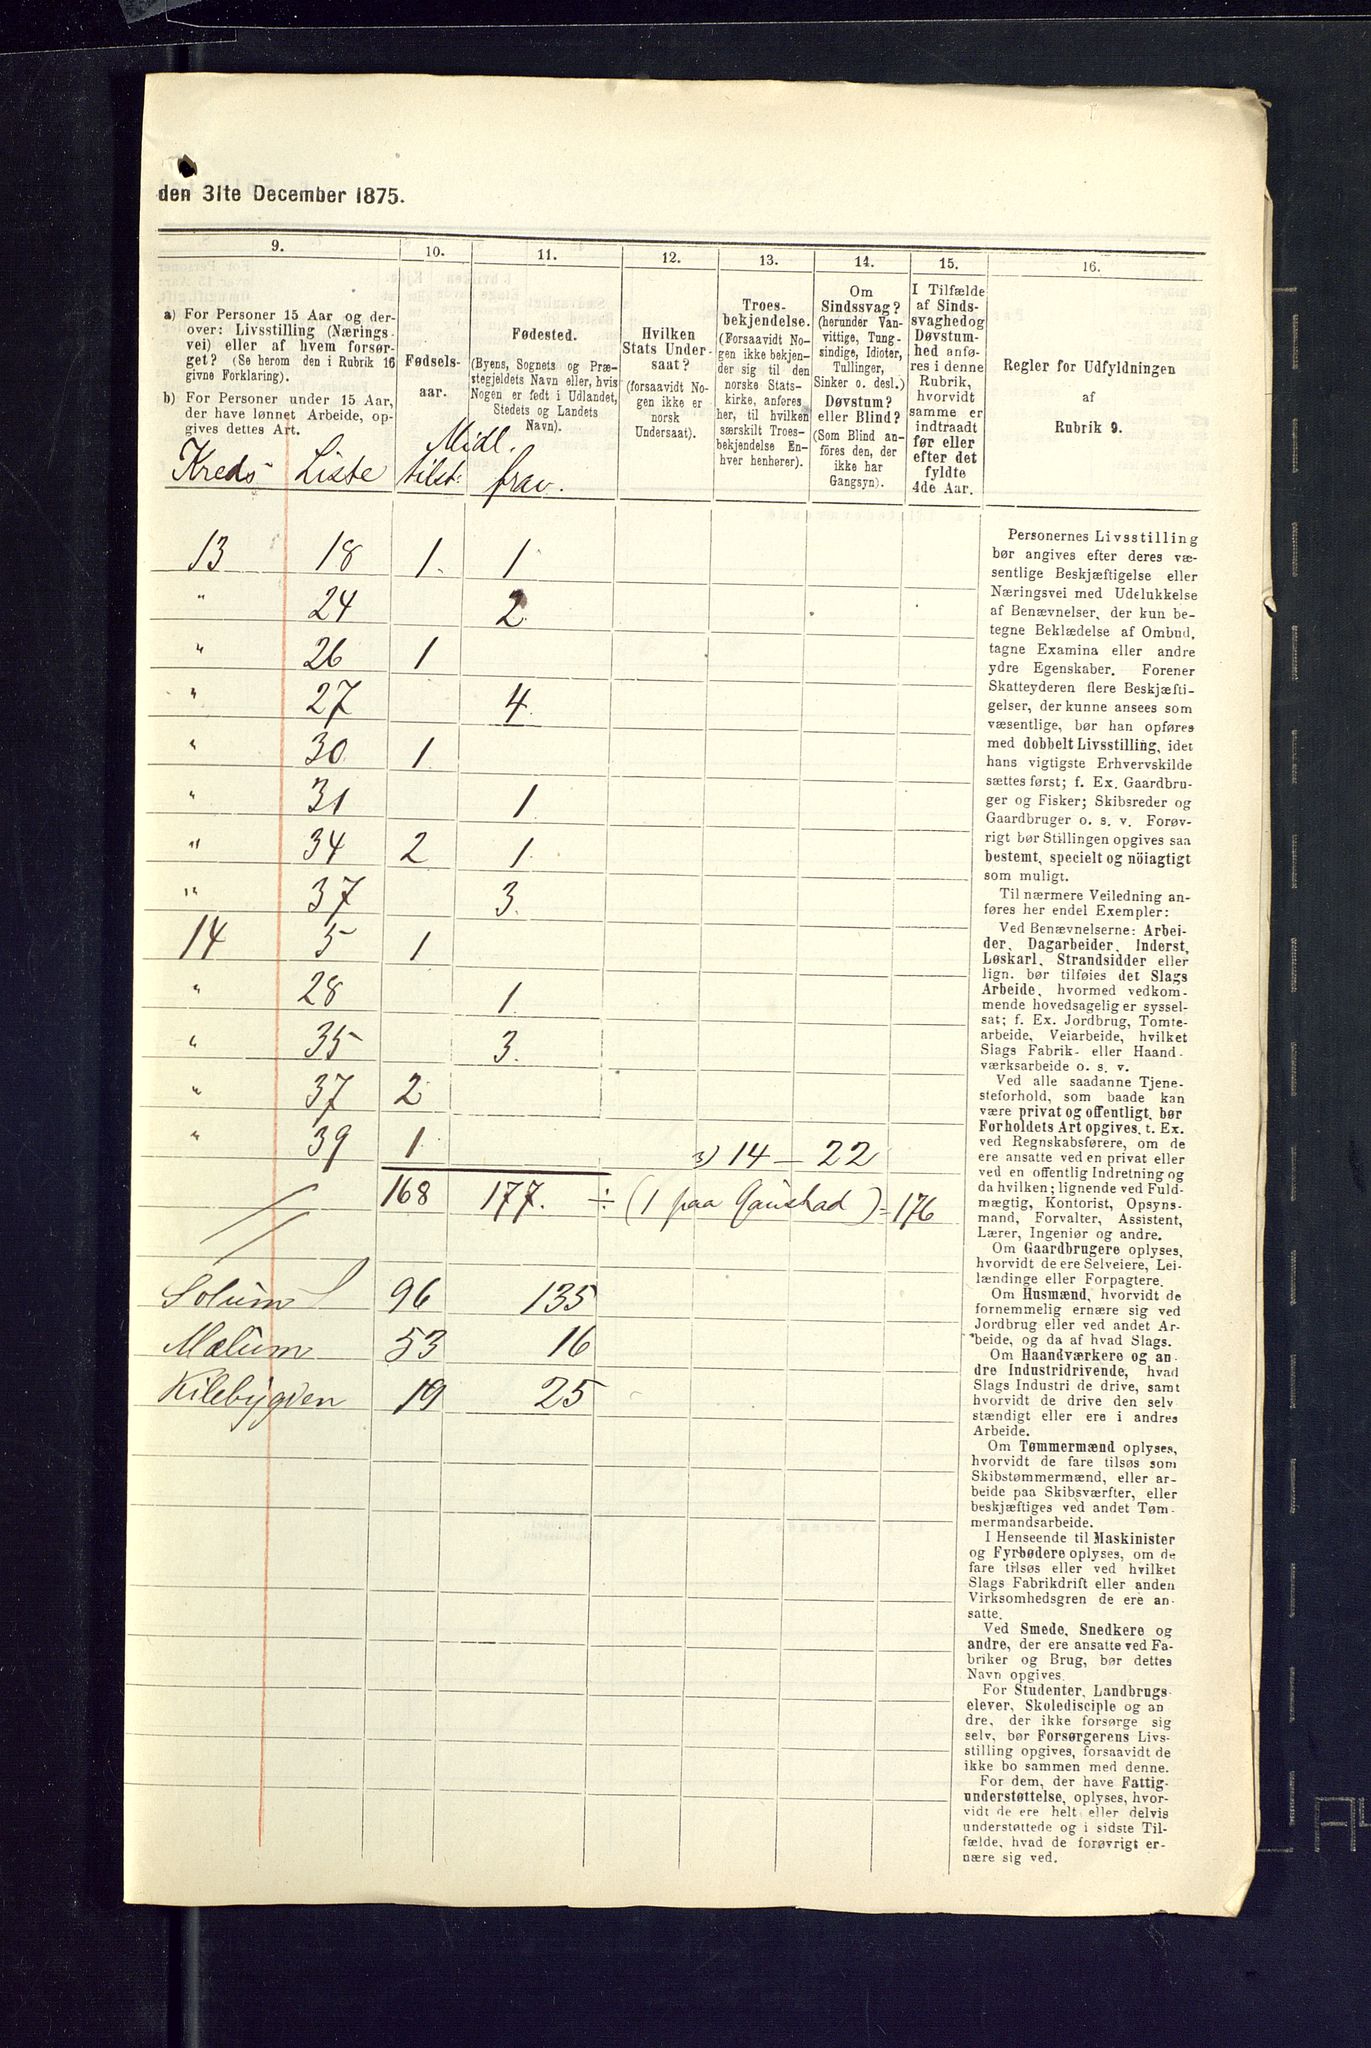 den 31te December 1875.
9.
a) For Personer 15 Aar og der-
over: Livsstilling (Nærings-
vei) eller af hvem forsør-
get? (Se herom den i Rubrik 16
givne Forklaring).
b) For Personer under 15 Aar,
der have lønnet Arbeide, op-
gives dettes Art.
10.
Fødsels-
aar.
11.
Fødested.
(Byens, Sognets og Præ-
stegjeldets Navn eller, hvis
Nogen er født i Udlandet,
Stedets og Landets
Navn).
12.
Hvilken
Stats Under-
saat?
(forsaavidt No-
gen ikke er
norsk
Undersaat).
13.
Troes-
bekjendelse.
(Forsaavidt No-
gen ikke bekjen-
der sig til den
norske Stats-
kirke, anføres
her, til hvilken
særskilt Troes-
bekjendelse En-
hver henhører).
14.
Om
Sindssvag?
(herunder Van-
vittige, Tung-
sindige, Idioter,
Tullinger,
Sinker o. desl.)
Døvstum?
eller Blind?
(Som Blind an-
føres den, der
ikke har
Gangsyn).
15.
I Tilfælde
af Sinds-
svaghed og
Døvstum-
hed anfø-
res i denne
Rubrik,
hvorvidt
samme er
indtraadt
før eller
efter det
fyldte
4de Aar.
16.
Regler for Udfyldningen
af
Rubrik 9.
Midl.
Kreds Liste tilst. frav.
13 18 1. 1.
" 24 2.
" 26 1
" 27 4.
" 30. 1.
" 31 1.
" 34 2 1.
" 37 3.
14 5 1
" 28 1.
" 35 3.
" 37 2
" 39 1. 3) 14 – 22
168 177. ÷ (1 paa Gaustad) = 176
Solum 96 135
Mælum 53 16
Kilebygden 19 25
Personernes Livsstilling
bør angives efter deres væ-
sentlige Beskjæftigelse eller
Næringsvei med Udelukkelse
af Benævnelser, der kun be-
tegne Beklædelse af Ombud,
tagne Examina eller andre
ydre Egenskaber. Forener
Skatteyderen flere Beskjæfti-
gelser, der kunne ansees som
væsentlige, bør han opføres
med dobbelt Livsstilling, idet
hans vigtigste Erhvervskilde
sættes først; f. Ex. Gaardbru-
ger og Fisker; Skibsreder og
Gaardbruger o. s. v. Forøv-
rigt bør Stillingen opgives saa
bestemt, specielt og nöiagtigt
som muligt.
Til nærmere Veiledning an-
føres her endel Exempler:
Ved Benævnelserne: Arbei-
der, Dagarbeider, Inderst,
Løskarl, Strandsidder eller
lign. bør tilføies det Slags
Arbeide, hvormed vedkom-
mende hovedsagelig er syssel-
sat; f. Ex. Jordbrug, Tomte-
arbeide, Veiarbeide, hvilket
Slags Fabrik- eller Haand-
værksarbeide o. s. v.
Ved alle saadanne Tjene-
steforhold, som baade kan
være privat og offentligt, bør
Forholdets Art opgives, t. Ex.
ved Regnskabsførere, om de
ere ansatte ved en privat eller
ved en offentlig Indretning og
da hvilken; lignende ved Fuld-
mægtig, Kontorist, Opsyns-
mand, Forvalter, Assistent,
Lærer, Ingeniør og andre.
Om Gaardbrugere oplyses,
hvorvidt de ere Selveiere, Lei-
lændinge eller Forpagtere.
Om Husmænd, hvorvidt de
fornemmelig ernære sig ved
Jordbrug eller ved andet Ar-
beide, og da af hvad Slags.
Om Haandværkere og an-
dre Industridrivende, hvad
Slags Industri de drive, samt
hvorvidt de drive den selv-
stændigt eller ere i andres
Arbeide.
Om Tømmermænd oplyses,
hvorvidt de fare tilsøs som
Skibstømmermænd, eller ar-
beide paa Skibsværfter, eller
beskjæftiges ved andet Tøm-
mermandsarbeide.
I Henseende til Maskinister
og Fyrbødere oplyses, om de
fare tilsøs eller ved hvilket
Slags Fabrikdrift eller anden
Virksomhedsgren de ere an-
satte.
Ved Smede, Snedkere og
andre, der ere ansatte ved Fa-
briker og Brug, bør dettes
Navn opgives.
For Studenter, Landbrugs-
elever, Skoledisciple og an-
dre, der ikke forsørge sig
selv, bør Forsørgerens Livs-
stilling opgives, forsaavidt de
ikke bo sammen med denne.
For dem, der have Fattig-
understøttelse, oplyses, hvor-
vidt de ere helt eller delvis
understøttede og i sidste Til-
fælde, hvad de forøvrigt er-
nære sig ved.